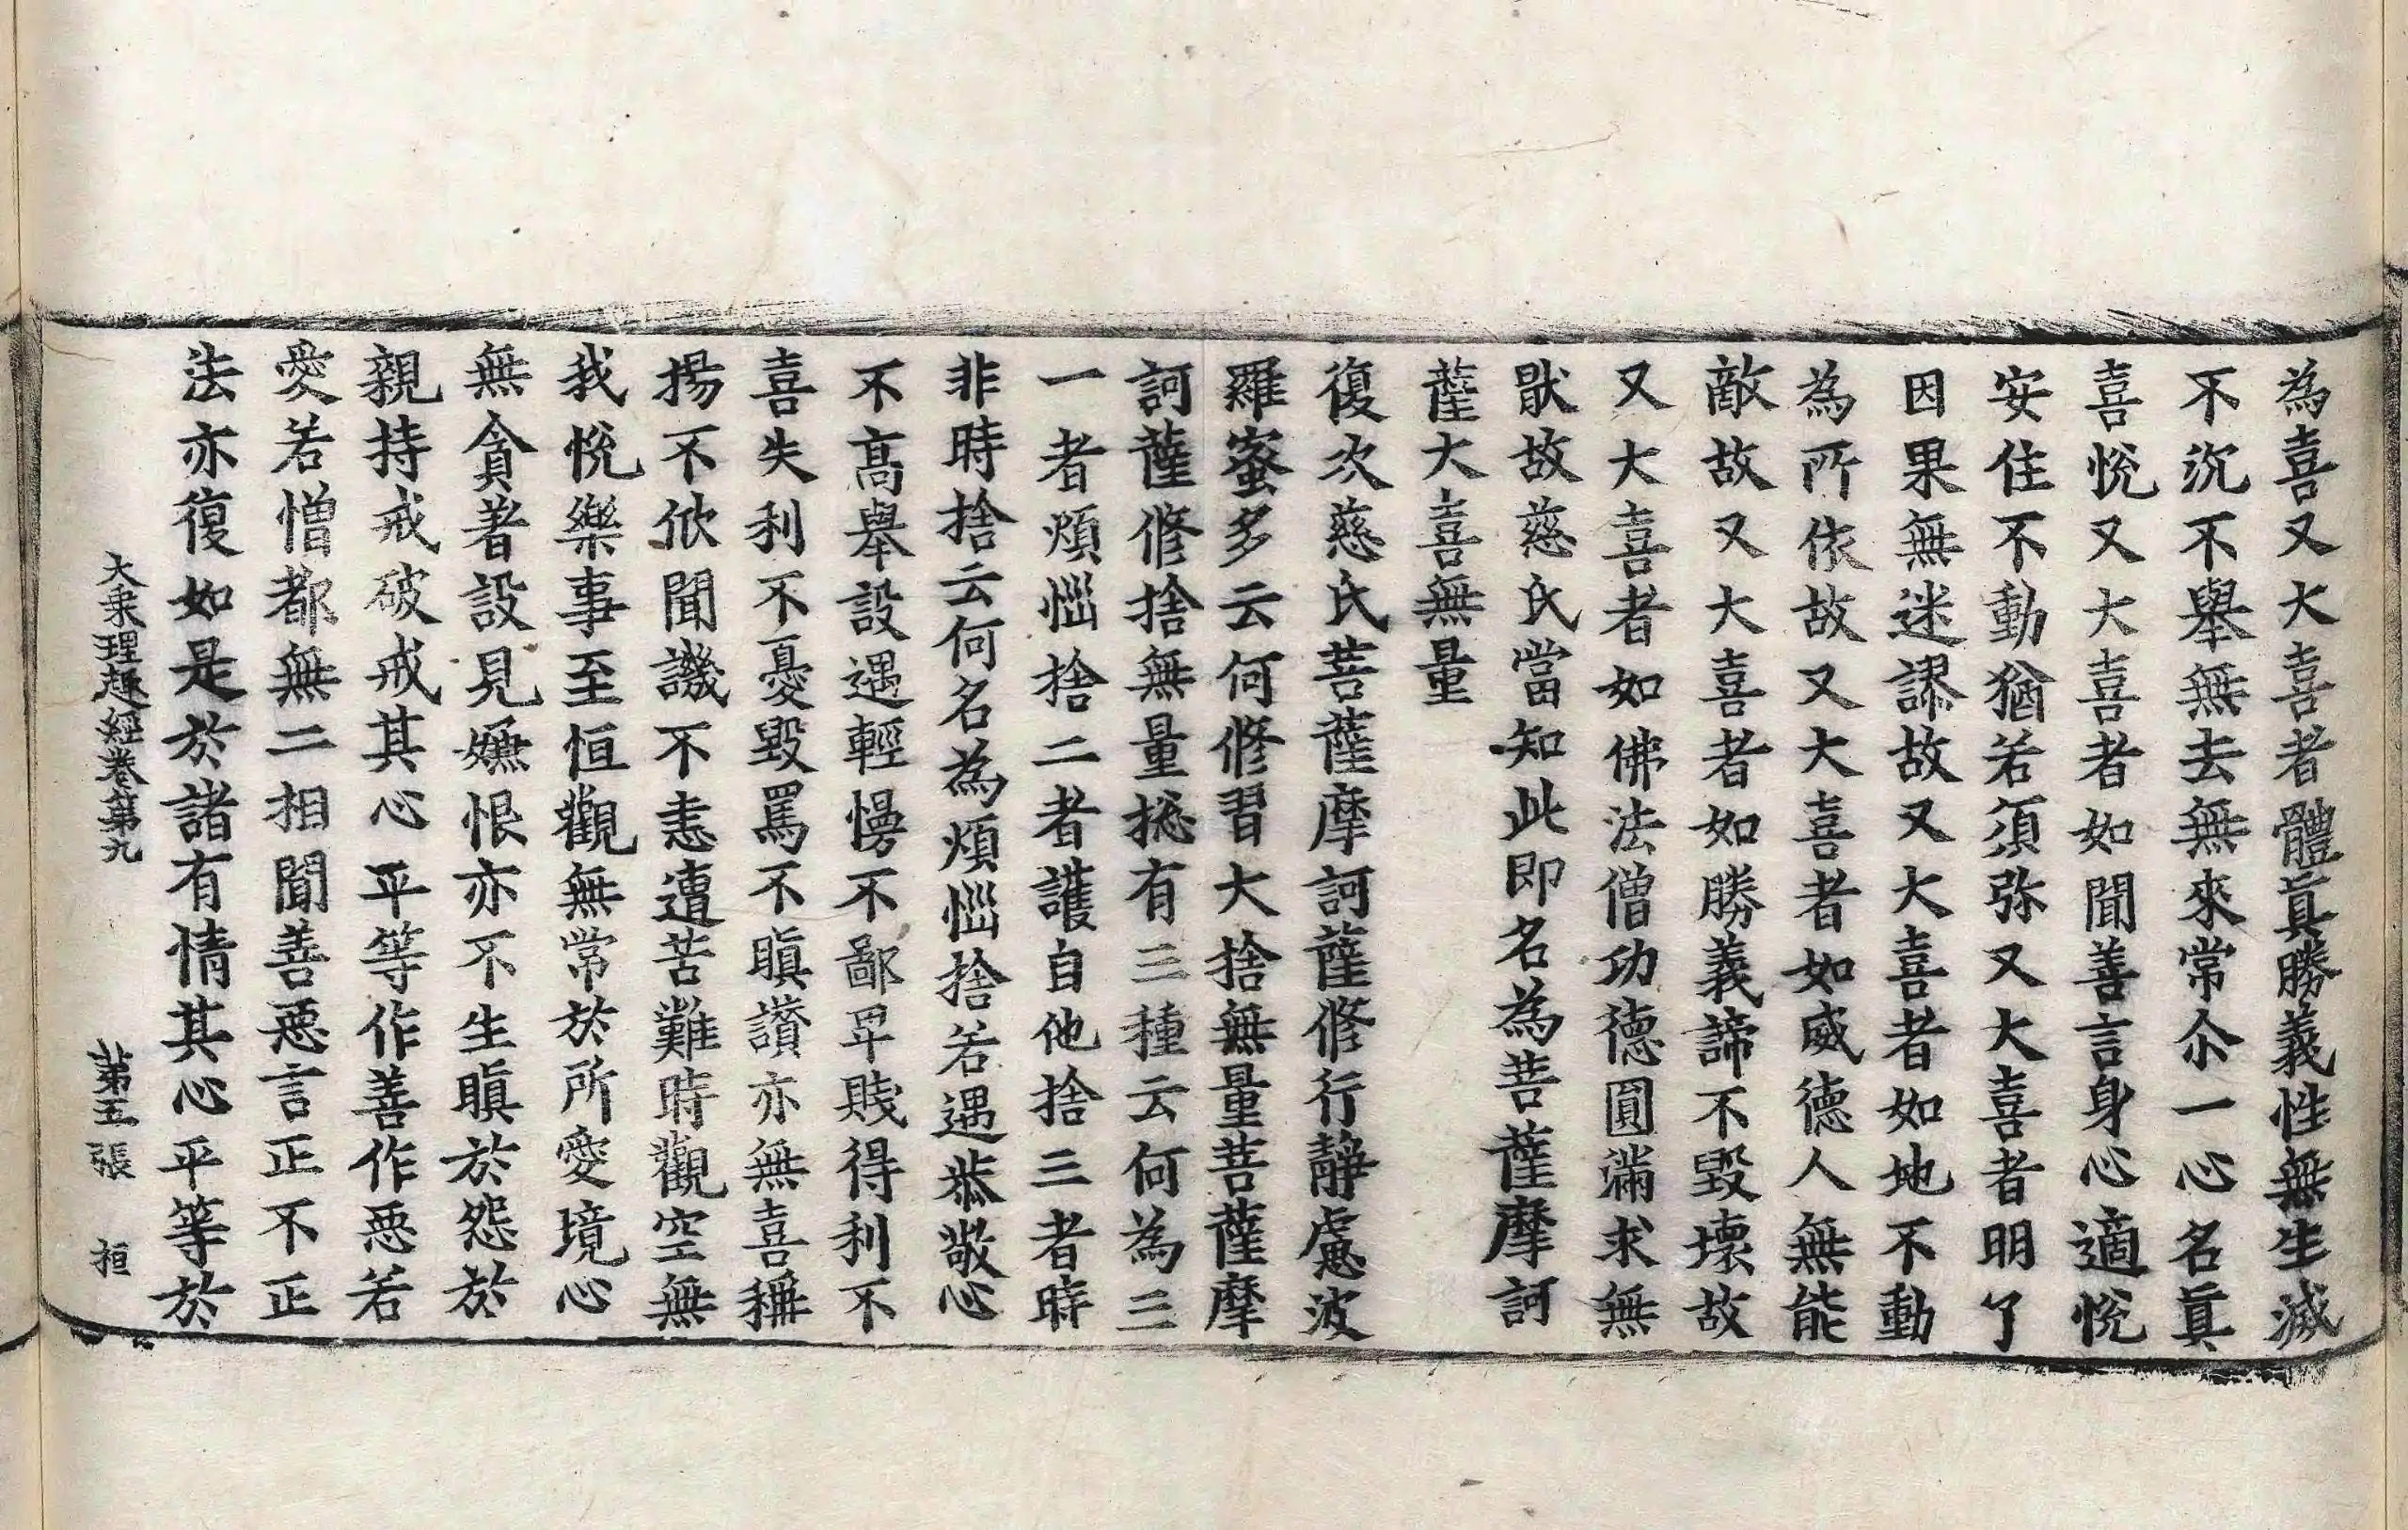 為喜又大喜者體眞勝義性無生滅
不沉不舉無去無來常尒一心名眞
喜悅又大喜者如聞善言身心適悅
安住不動猶若須弥又大喜者明了
因果無迷謬故又大喜者如地不動
為所依故又大喜者如威德人無能
敵故又大喜者如勝義諦不毀壞故
又大喜者如佛法僧功德圓滿求無
猒故慈氏當知此即名為菩薩摩訶
薩大喜無量
復次慈氏菩薩摩訶薩修行靜慮波
羅蜜多云何修習大捨無量菩薩摩
訶薩修捨無量捴有三種云何為三
一者煩惱捨二者護自他捨三者時
非時捨云何名為煩惱捨若遇恭敬心
不高舉設遇輕慢不鄙卑賤得利不
喜失利不憂毀罵不瞋讚亦無喜稱
揚不欣聞譏不恚遭苦難時觀空無
我悅樂事至恒觀無常於所愛境心
無貪著設見嫌恨亦不生瞋於怨於
親持戒破戒其心平等作善作惡若
愛若憎都無二相聞善惡言正不正
法亦復如是於諸有情其心平等於
大乘理趣經卷第九 第五張 桓